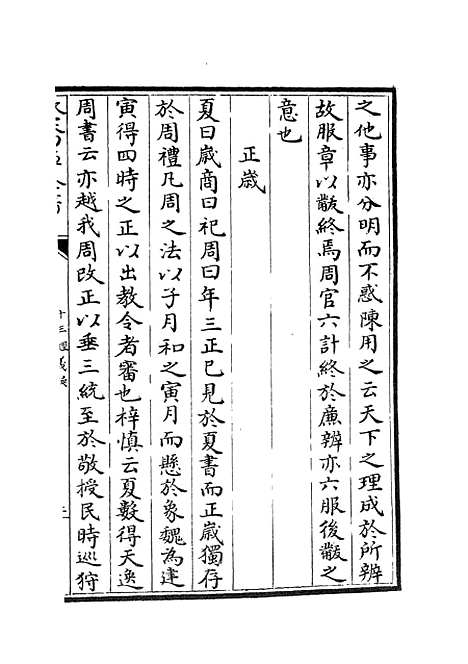 之他事亦分明而不惑陳用之云天下之理成於所辨
故服章以黻終焉周官六計終於廉辨亦六服後黻之
意也
正歲
夏曰歲商曰祀周曰年三正已見於夏書而正歲獨存
於周禮凡周之法以子月和之寅月而懸於象魏為建
寅得四時之正以出教令者審也梓慎云夏數得天逸
周書云亦越我周改正以垂三統至於敬授民時巡狩
十三經義疑